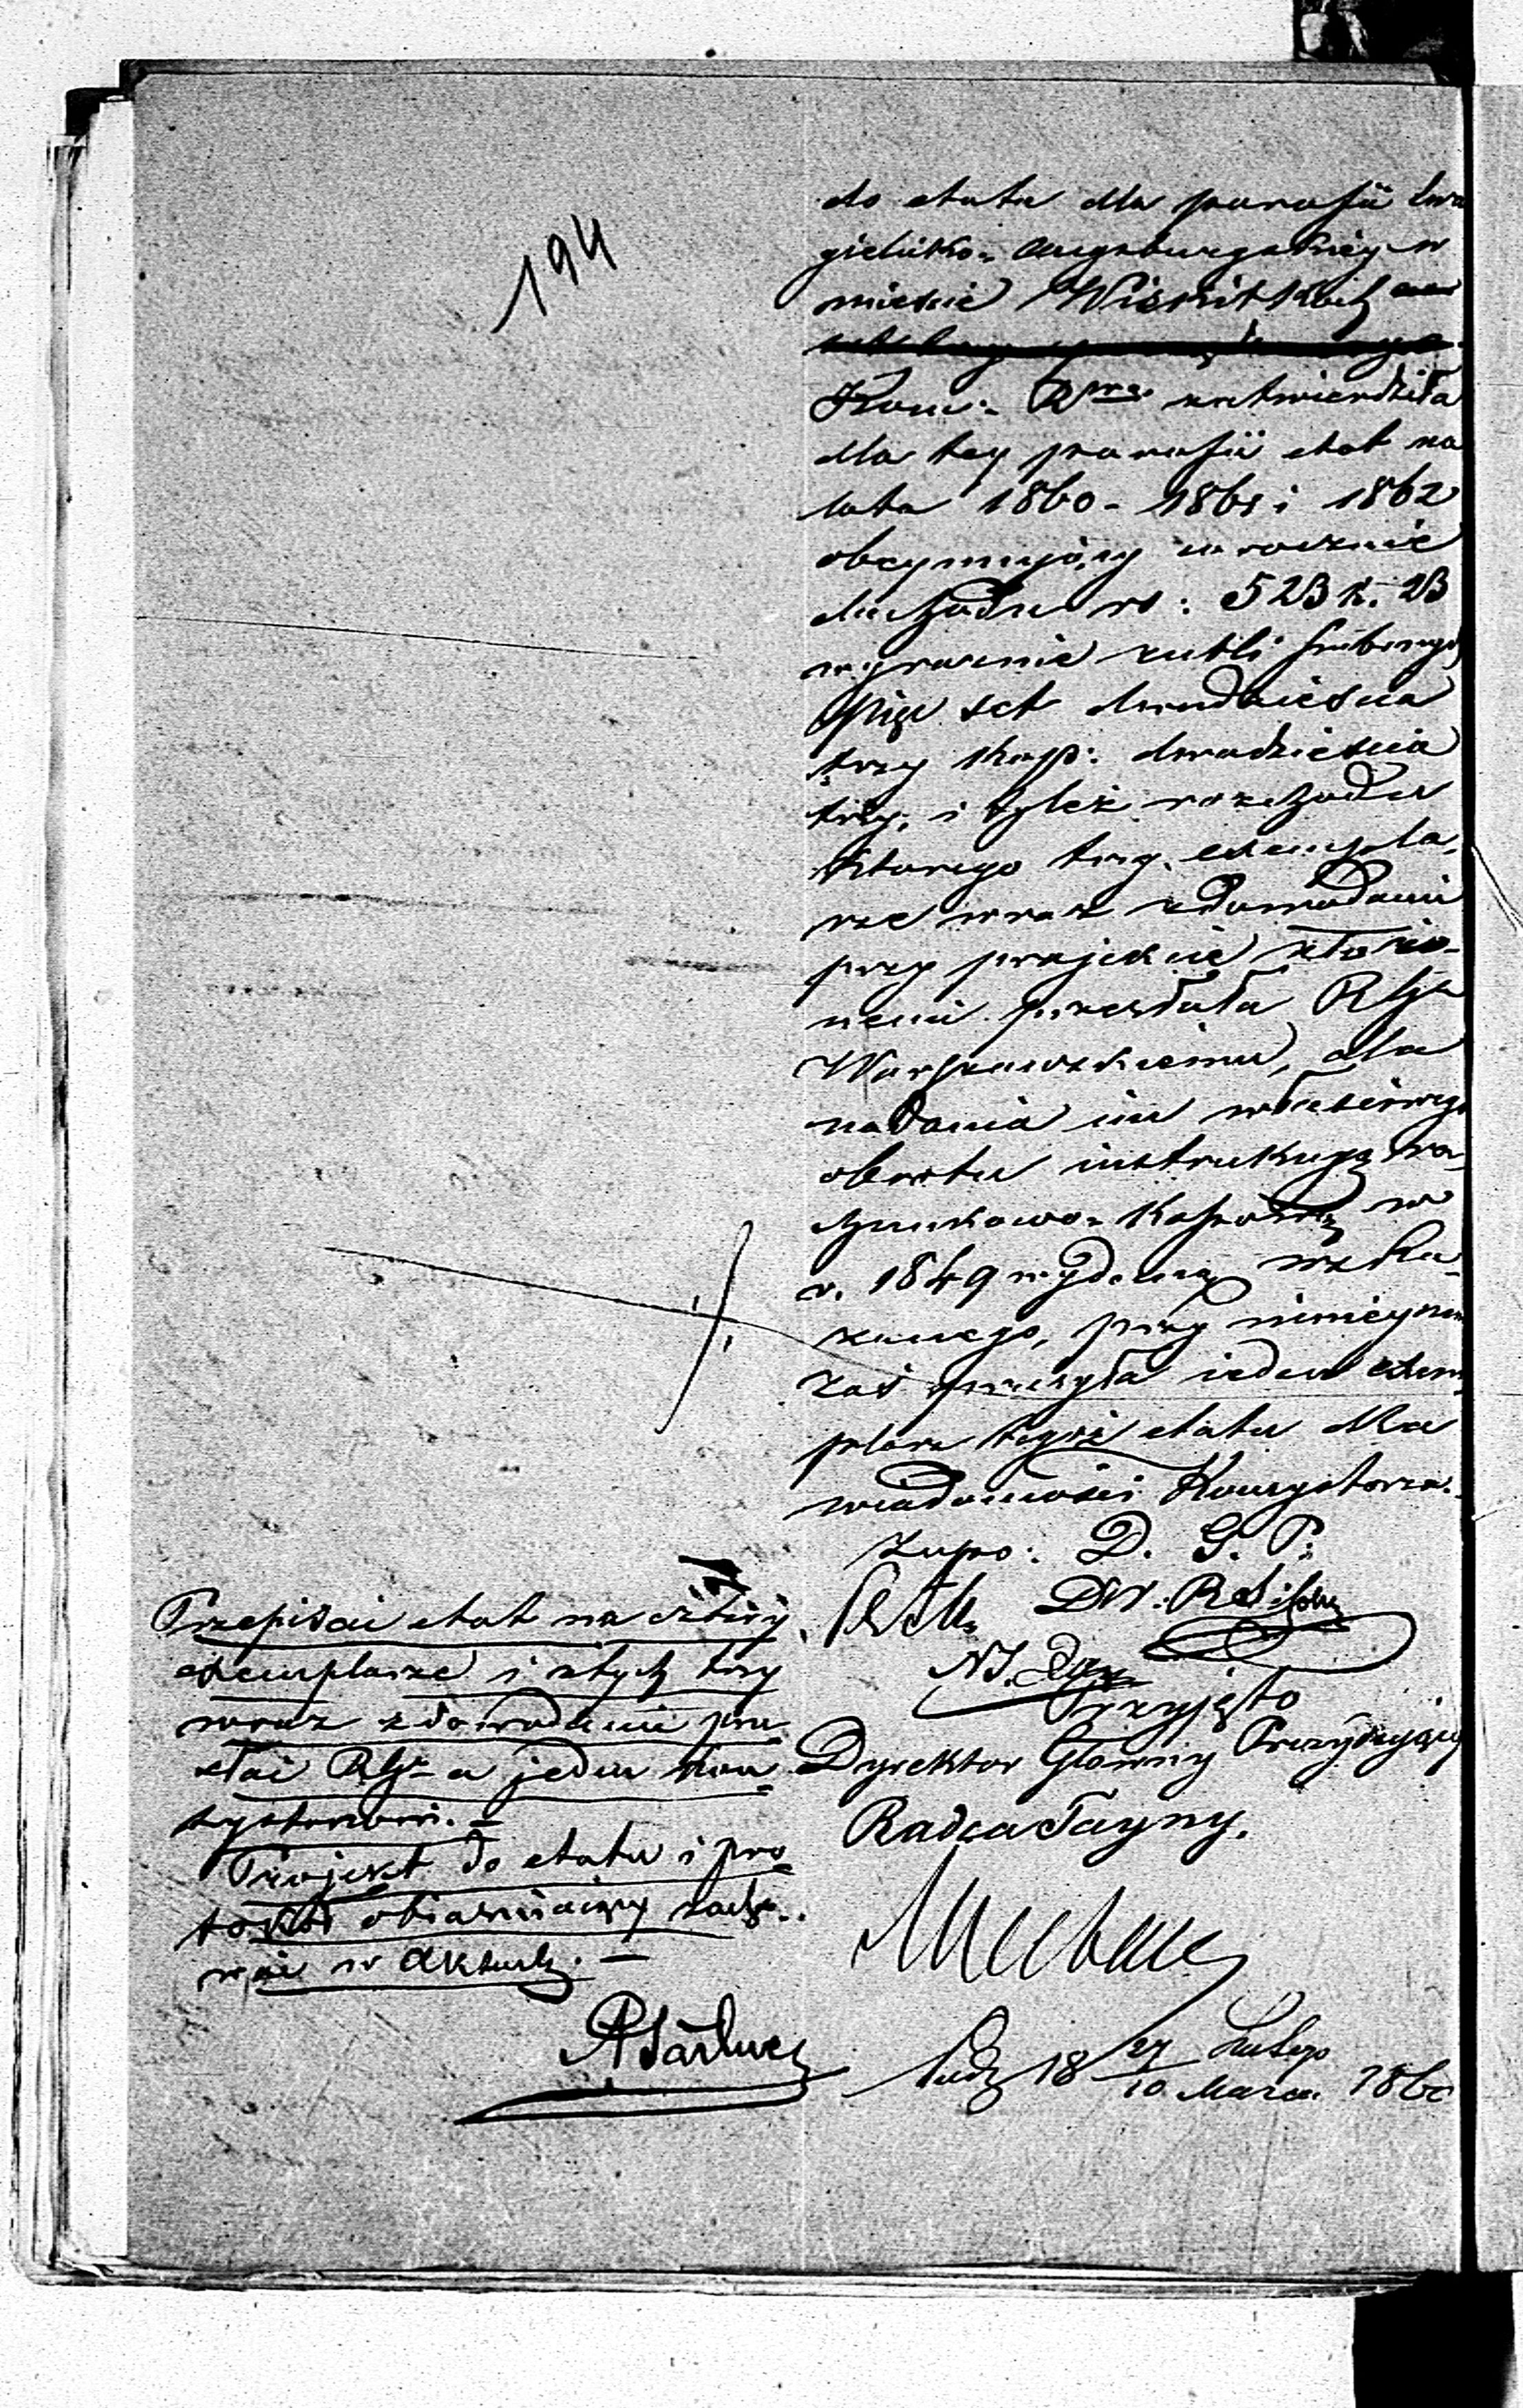 194
do etatu dla parafii Ewa
gielicko= Augsburgskiéy w
mieście Wiskitkach
Kom: Rwa zatwierdziła
dla tey parafii etat na
lata 1860 - 1861 i 1862
obeymujący w rocznie
dochodu rs: 523 k. 23
wyraźnie rubli srebrnych
pięć set dwadzieścia
trzy kop: dwadzieścia
trzy, i tyleż rozchodu
którego trzy exempla=
rze wraz z dowodami
przy projekcie złożo=
nemi przesłała Rządo
Warszawskiemu, dla
nadania im właściwego
obrotu instrukcyą ra=
chunkowo= kassową w
r. 1849 wydaną wska=
zanego, przy ninieyszem
zaś przesyła ieden exem=
plarz tegoż etatu dla
wiadomości Konsystorza.
D. G. P.
Dyr.
Przyjęto
Dyrektor Głowny Prezydujący
Radca Tayny.
dnia 27 Lutego
10 Marca 1860
Przepisać etat na cztery
exemplarze i z tych trzy
wraz z dowodami prze
słać Rząd= a jeden Kon=
systorzowi. =
Projekt do etatu i pro=
tokół obiaśniaiący zacho=
wać w Aktach. —